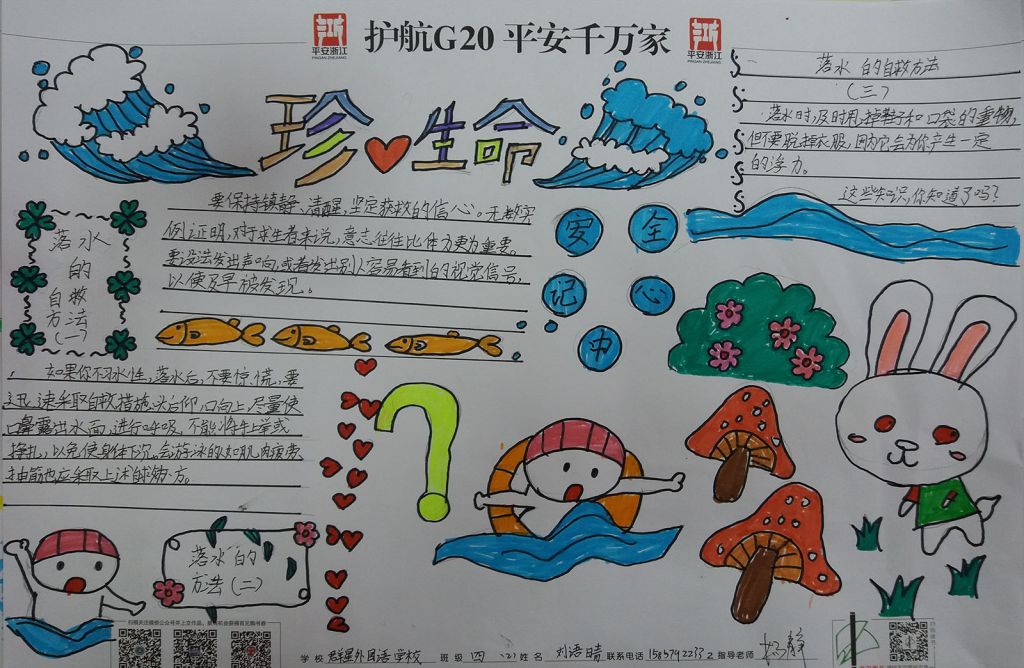 护航G20 平安千万家
平安浙江
PINGAN ZHEJIANG
平安浙江
PINGAN ZHEJIANG
珍 生命
落水 的自救方法
(三)
落水时,及时甩掉鞋子和口袋的重物,
但不要脱掉衣服,因为它会为你产生一定
的浮力。
这些知识,你知道了吗?
落水
的
自救
方法
(一)
要保持镇静、清醒,坚定获救的信心。无数实
例证明,对于求生者来说,意志往往比体力更为重要。
要设法发出声响,或者发出别人容易看到的视觉信号,
以便及早被发现。
安 全
记 心
中
如果你不习水性,落水后,不要惊慌,要
迅速采取自救措施:头后仰,口向上,尽量使
口鼻露出水面,进行呼吸,不能将手上举或
挣扎,以免使身体下沉,会游泳的如肌肉疲劳
抽筋也应采取上述自救方。
?
落水 的
方法(二)
学校 群星外国语学校 班级 四(2) 姓名 刘语晴 联系电话 15857922332 指导老师 杨静